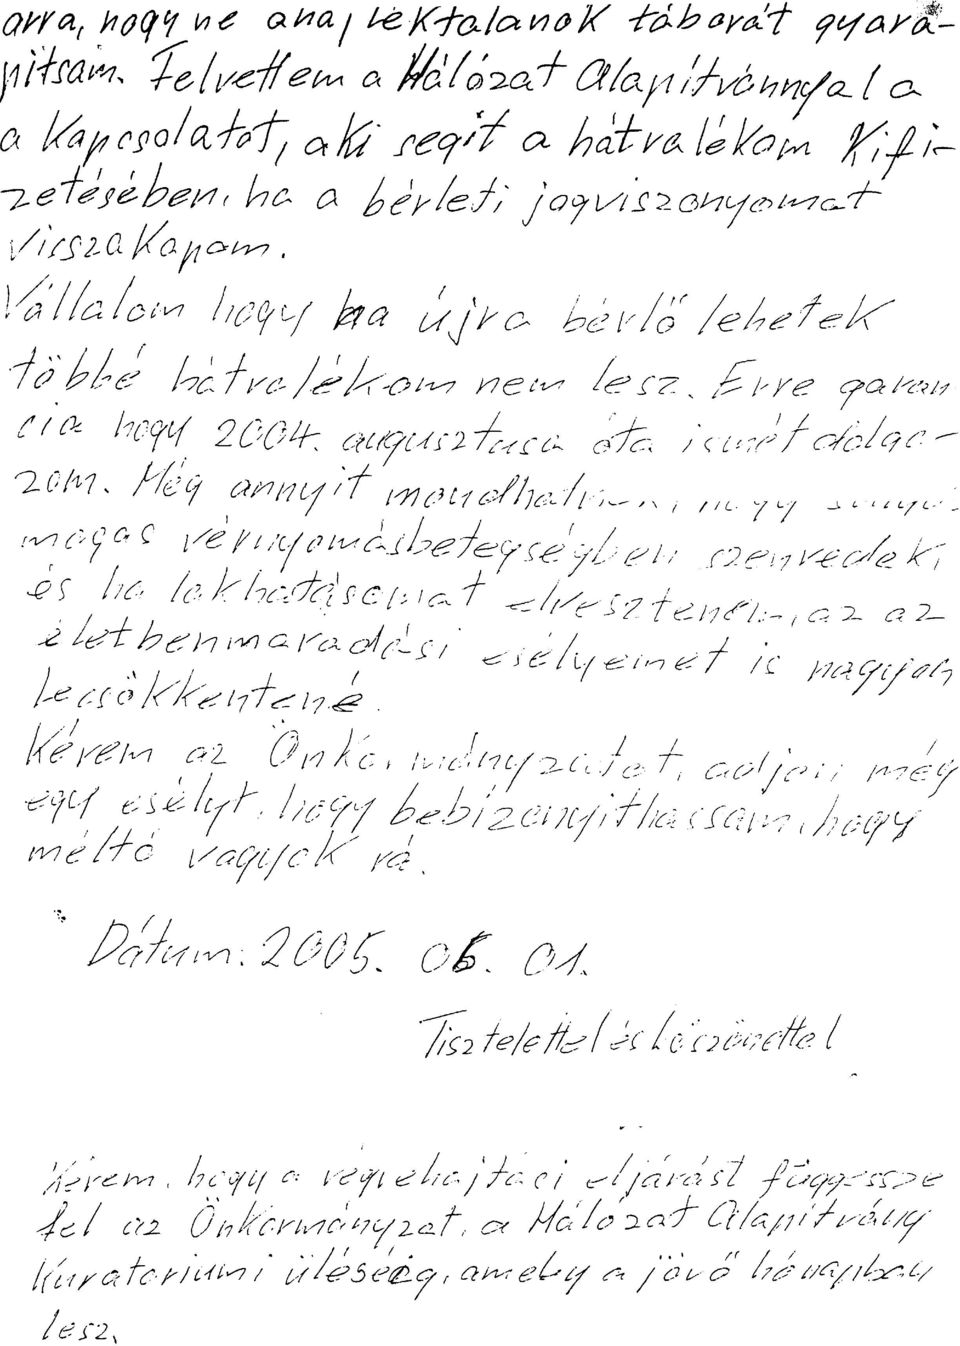 arra, hogy ne a hajléktalanok táborát gyara-
pitsam. Felvettem a Hálózat Alapítvánnyal a
a kapcsolatot, aki segit a hátralékom kifi-
zetésében, ha a bérleti jogviszonyomat
visszakapom.
Vállalom hogy ha újra bérlő lehetek
többé hátralékom nem lesz. Erre garan
cia hogy 2004. augusztusa óta ismét dolgo-
zom. Még annyit mondhatnék, hogy
magas vérnyomásbetegségben szenvedek,
és ha lakhatásomat elveszteném, az az
életbenmaradási esélyeimet is nagyon
lecsökkentené.
Kérem az Önkormányzatot, adjon még
egy esélyt, hogy bebizonyithassam, hogy
méltó vagyok rá.
Dátum: 2005. 06. 01.
Tisztelettel és köszönettel
Kérem, hogy a végrehajtási eljárást függessze
fel az Önkormányzat, a Hálózat Alapítvány
Kuratoriumi üléséig, amely a jövő hónapban
lesz.